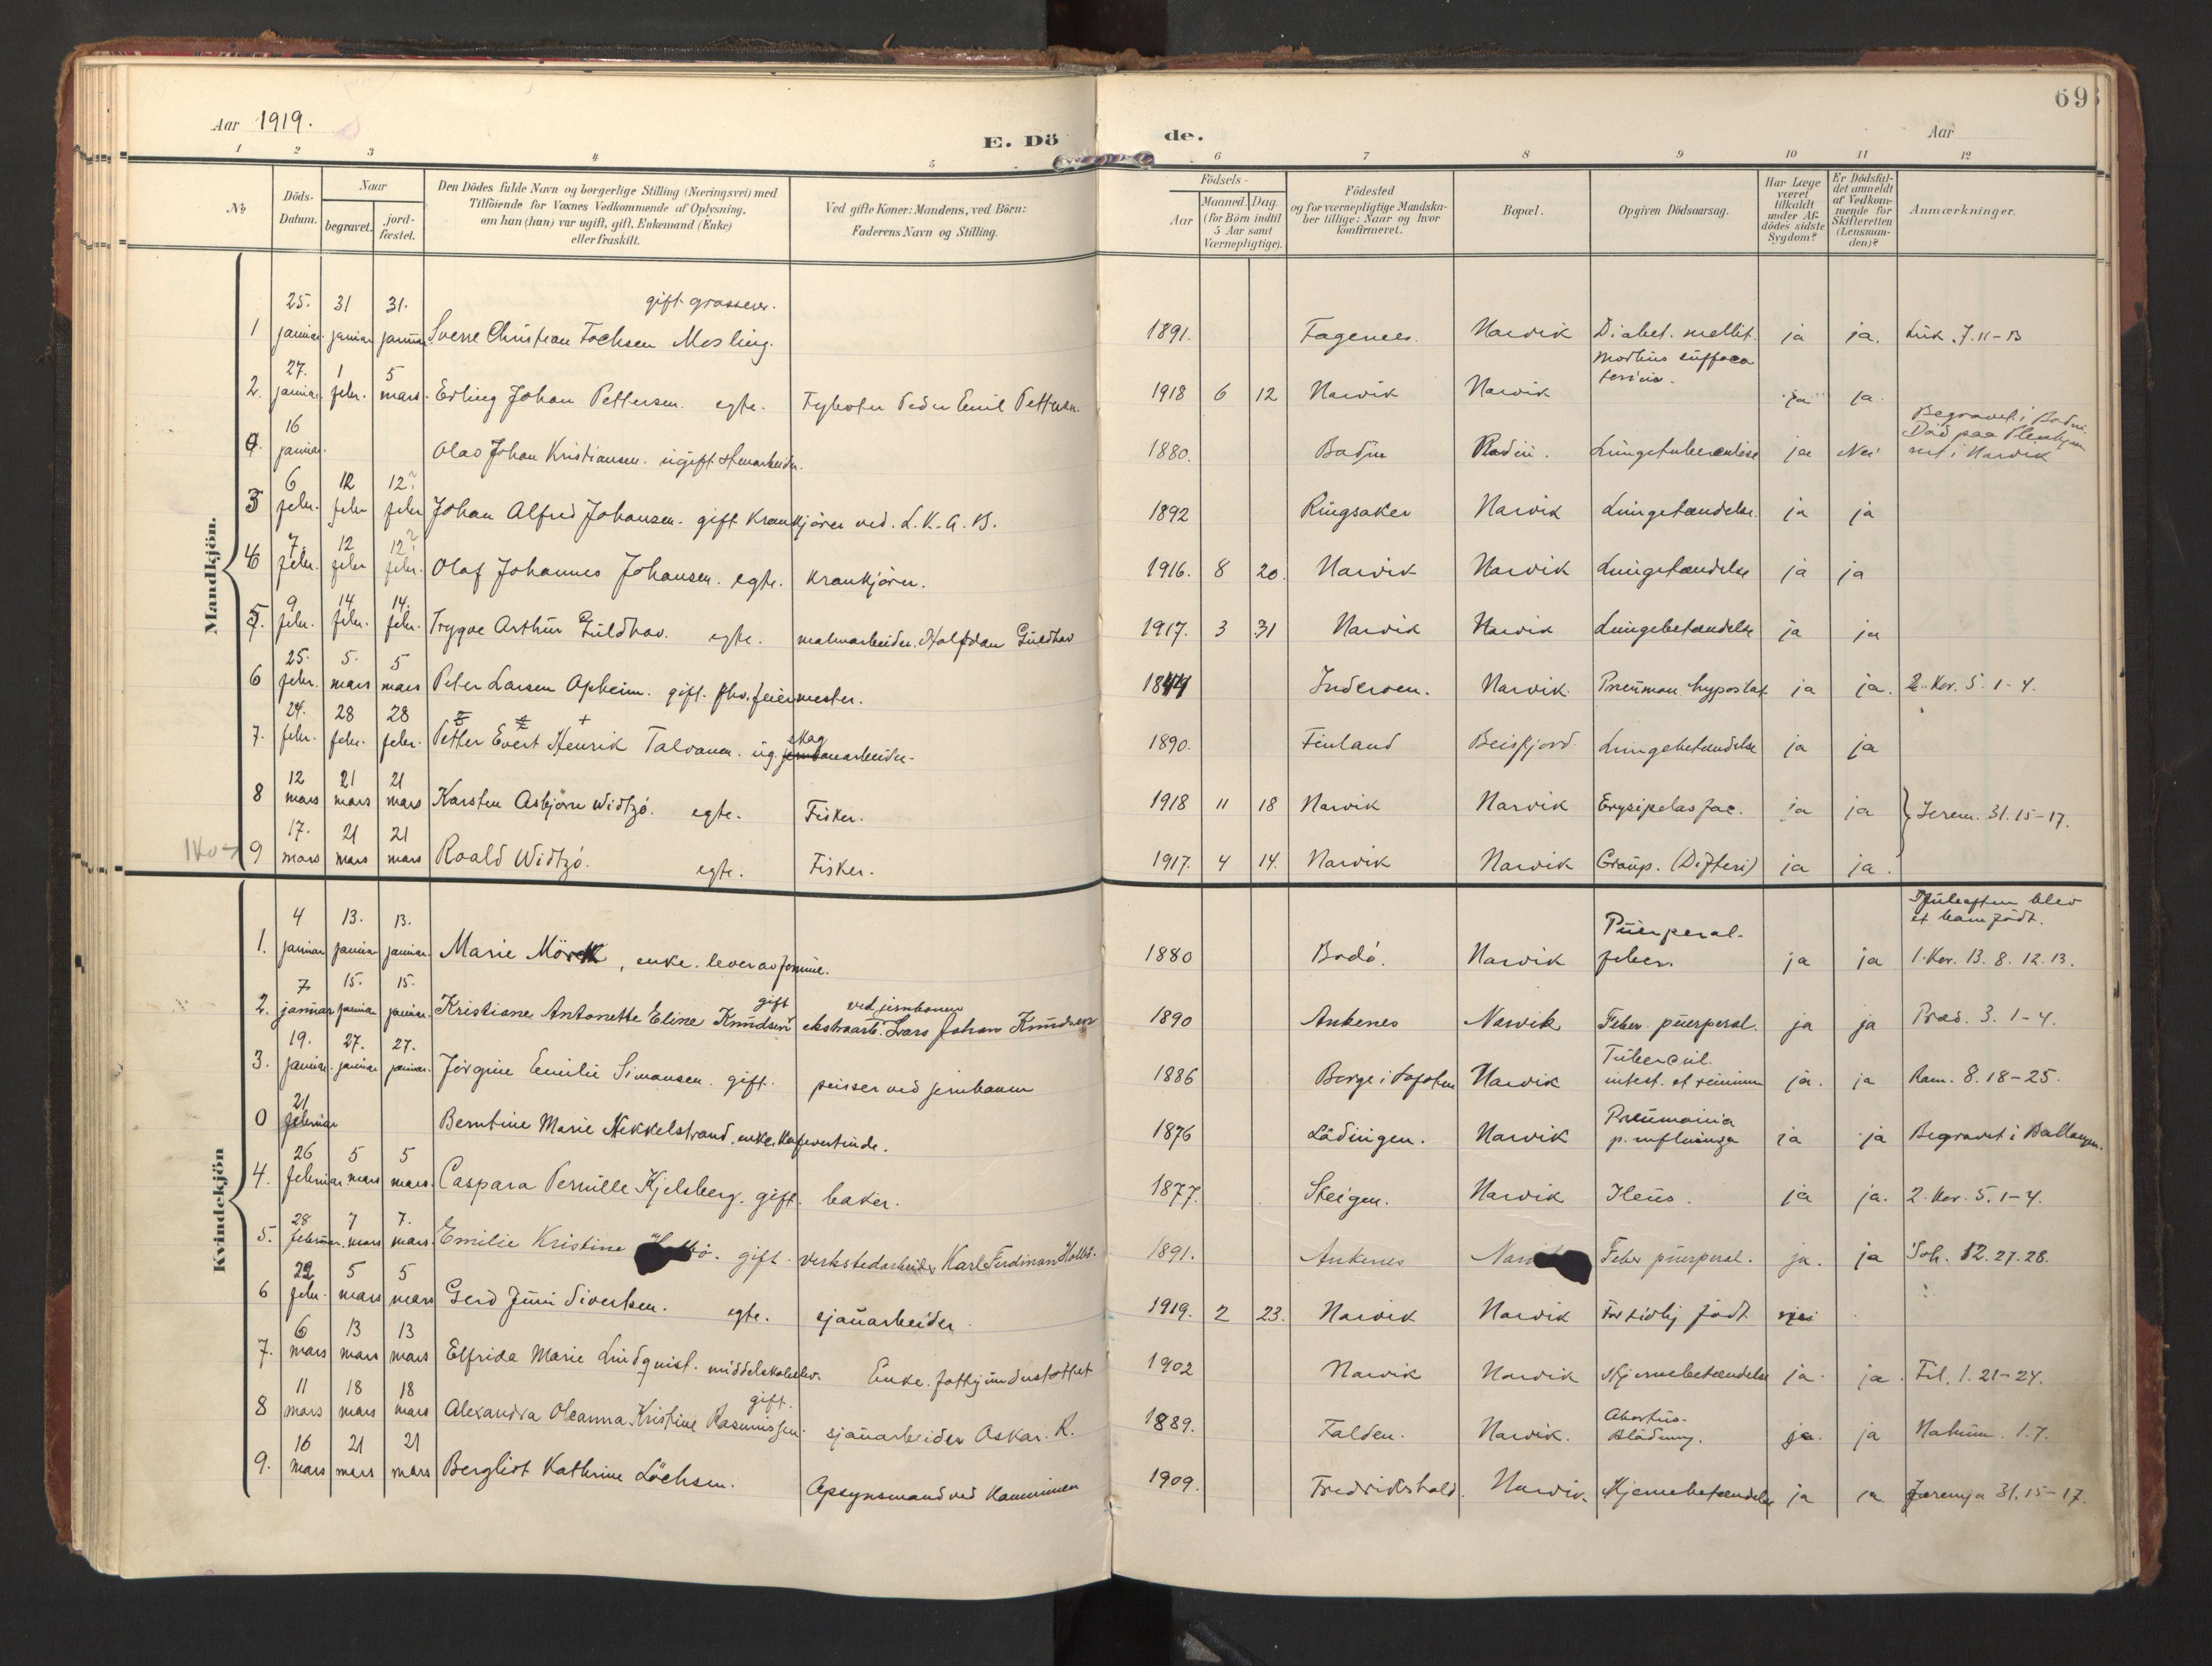 69
Aar 1919.
E. Dö de.
Aar
1 2 3 4 5 6 7 8 9 10 11 12
No
Döds-Datum.
Naar
begravet.
jord-fæstet.
Den Dödes fulde Navn og borgerlige Stilling (Næringsvei) med
Tilföiende for Voxnes Vedkommende af Oplysning,
om han (hun) var ugift, gift, Enkemand (Enke)
eller fraskilt.
Ved gifte Koner: Mandens, ved Börn:
Faderens Navn og Stilling.
Födsels-
Aar
Maaned. Dag.
(for Börn indtil
5 Aar samt
Værnepligtige).
Födested
og for værnepligtige Mandska-
ber tillige: Naar og hvor
konfirmeret.
Bopæl.
Opgiven Dödsaarsag.
Har Læge
været
tilkaldt
under Af-
dödes sidste
Sygdom?
Er Dödsfal-
det anmeldt
af Vedkom-
mende for
Skifteretten
(Lensman-
den)?
Anmærkninger.
Mandkjön.
1 25. januar 31 januar 31. januar Sverre Christian Mosling. gift grosserer. 1891. Fagernes. Narvik Diabet. mellit. ja ja. Luk. 7. 11-13
2. 27. januar 1 febr. 5 mars. Erling Johan Pettersen. egte. Peder Emil Pettersen. 1918 6 12 Narvik Narvik ja ja
16 januar. Olas Johan Kristiansen. ugift stenarbeider. 1880. Bodin Bodin. Lungetuberculose ja Nei Begravet i Bodin. Död paa i Narvik
3 6 febr. 12 febr 12 febr Johan Alfred Johansen. gift Krankjörer ved. L.K.A.B. 1892 Ringsaker Narvik Lungetændelse. ja ja
4 7. febr. 12 febr 12 febr. Olaf Johannes Johansen. egte. krankjörer. 1916. 8 20. Narvik Narvik Lungetændelse ja ja
5. 9 febr. 14 febr. 14. febr. Trygve Arthur Guldhav. egte. malmarbeider. Halfdan Guldhav 1917. 3 31 Narvik Narvik Lungebetændelse ja ja
6 25. febr. 5. mars 5 mars Peter Larsen Apheim. gift. fhv. feiermester. 1844 Inderoen. Narvik. Pneumon. hypostat. ja ja. 2. Kor. 5. 1-4.
7. 24. febr. 28 febr. 28 febr. Petter Evert Henrik Talvanen. ug. skog arbeider. 1890. Finland Beisfjord. Lungebetændelse ja ja
8 12 mars 21 mars 21 mars Karsten Asbjörn Widtzö. egte. Fisker. 1918 11 18 Narvik Narvik Erysipelas fac. ja ja } Jerem. 31. 15-17.
9 17. mars 21 mars 21 mars Roald Widtzö. egte. Fisker. 1917. 4 14. Narvik Narvik Croup. (Difteri) ja ja.
Kvindekjön
1. 4 januar 13. januar 13. januar. Marie Mörck, enke. lever av formue. 1880 Bodö. Narvik Puerperal-feber. ja ja Juleaften blev et barn födt. 1. Kor. 13. 8. 12. 13.
2. 7 januar 15. januar 15. januar. Kristiane Antonette Eline Knudsen gift ekstraarb. ved jernbanen Lars Johan Knudsen 1890 Ankenes Narvik Feber. puerperal. ja ja Præd. 3. 1-4.
3. 19. januar. 27. januar 27. januar. Jörgine Emilie Simonsen. gift. pusser ved jernbanen 1886 Borge i Lofoten Narvik Tubercul. intest. et ja. ja Rom. 8. 18-25.
0 21 februar Berntine Marie Nekkelstrand, enke, Kafevertinde. 1876 Lödingen. Narvik Pneumonia p. influenza ja ja Begravet i Ballangen.
4. 26 februar 5 mars 5 mars. Caspara Pernille Kjelsberg. gift. baker. 1877. Steigen. Narvik Ileus. ja ja. 2. Kor. 5. 1-4.
5. 28 februar. 7 mars 7. mars. Emilie Kristine gift. verkstedarbeider Karl Ferdinan Holbö. 1891. Ankenes Feber puerperal. ja. ja Joh. 12. 27. 28.
6 22 febr. 5 mars 5 mars Gerd Juni Sivertsen. egte. sjauarbeider. 1919. 2 23. Narvik Narvik For tidlig födt. nei
7. 6 mars 13 mars 13 mars Elfrida Marie Lindquist. middelskoleelev. Enke. 1902 Narvik Narvik Hjernebetændelse ja. ja. Fil. 1. 21-24.
8 11 mars 18 mars 18 mars Alexandra Oleanna Kristine Rasmussen. gift. sjauarbeider Oskar. R. 1889. Narvik. Abortus. Blödning. ja. ja Nahum. 1. 7.
9. 16 mars 21 mars 21 mars Bergliot Kathrine Löchsen. Opsynsmand ved Kommunen 1909. Fredrikshald. Narvik. Hjernebetændelse ja ja Jeremja 31. 15-17.